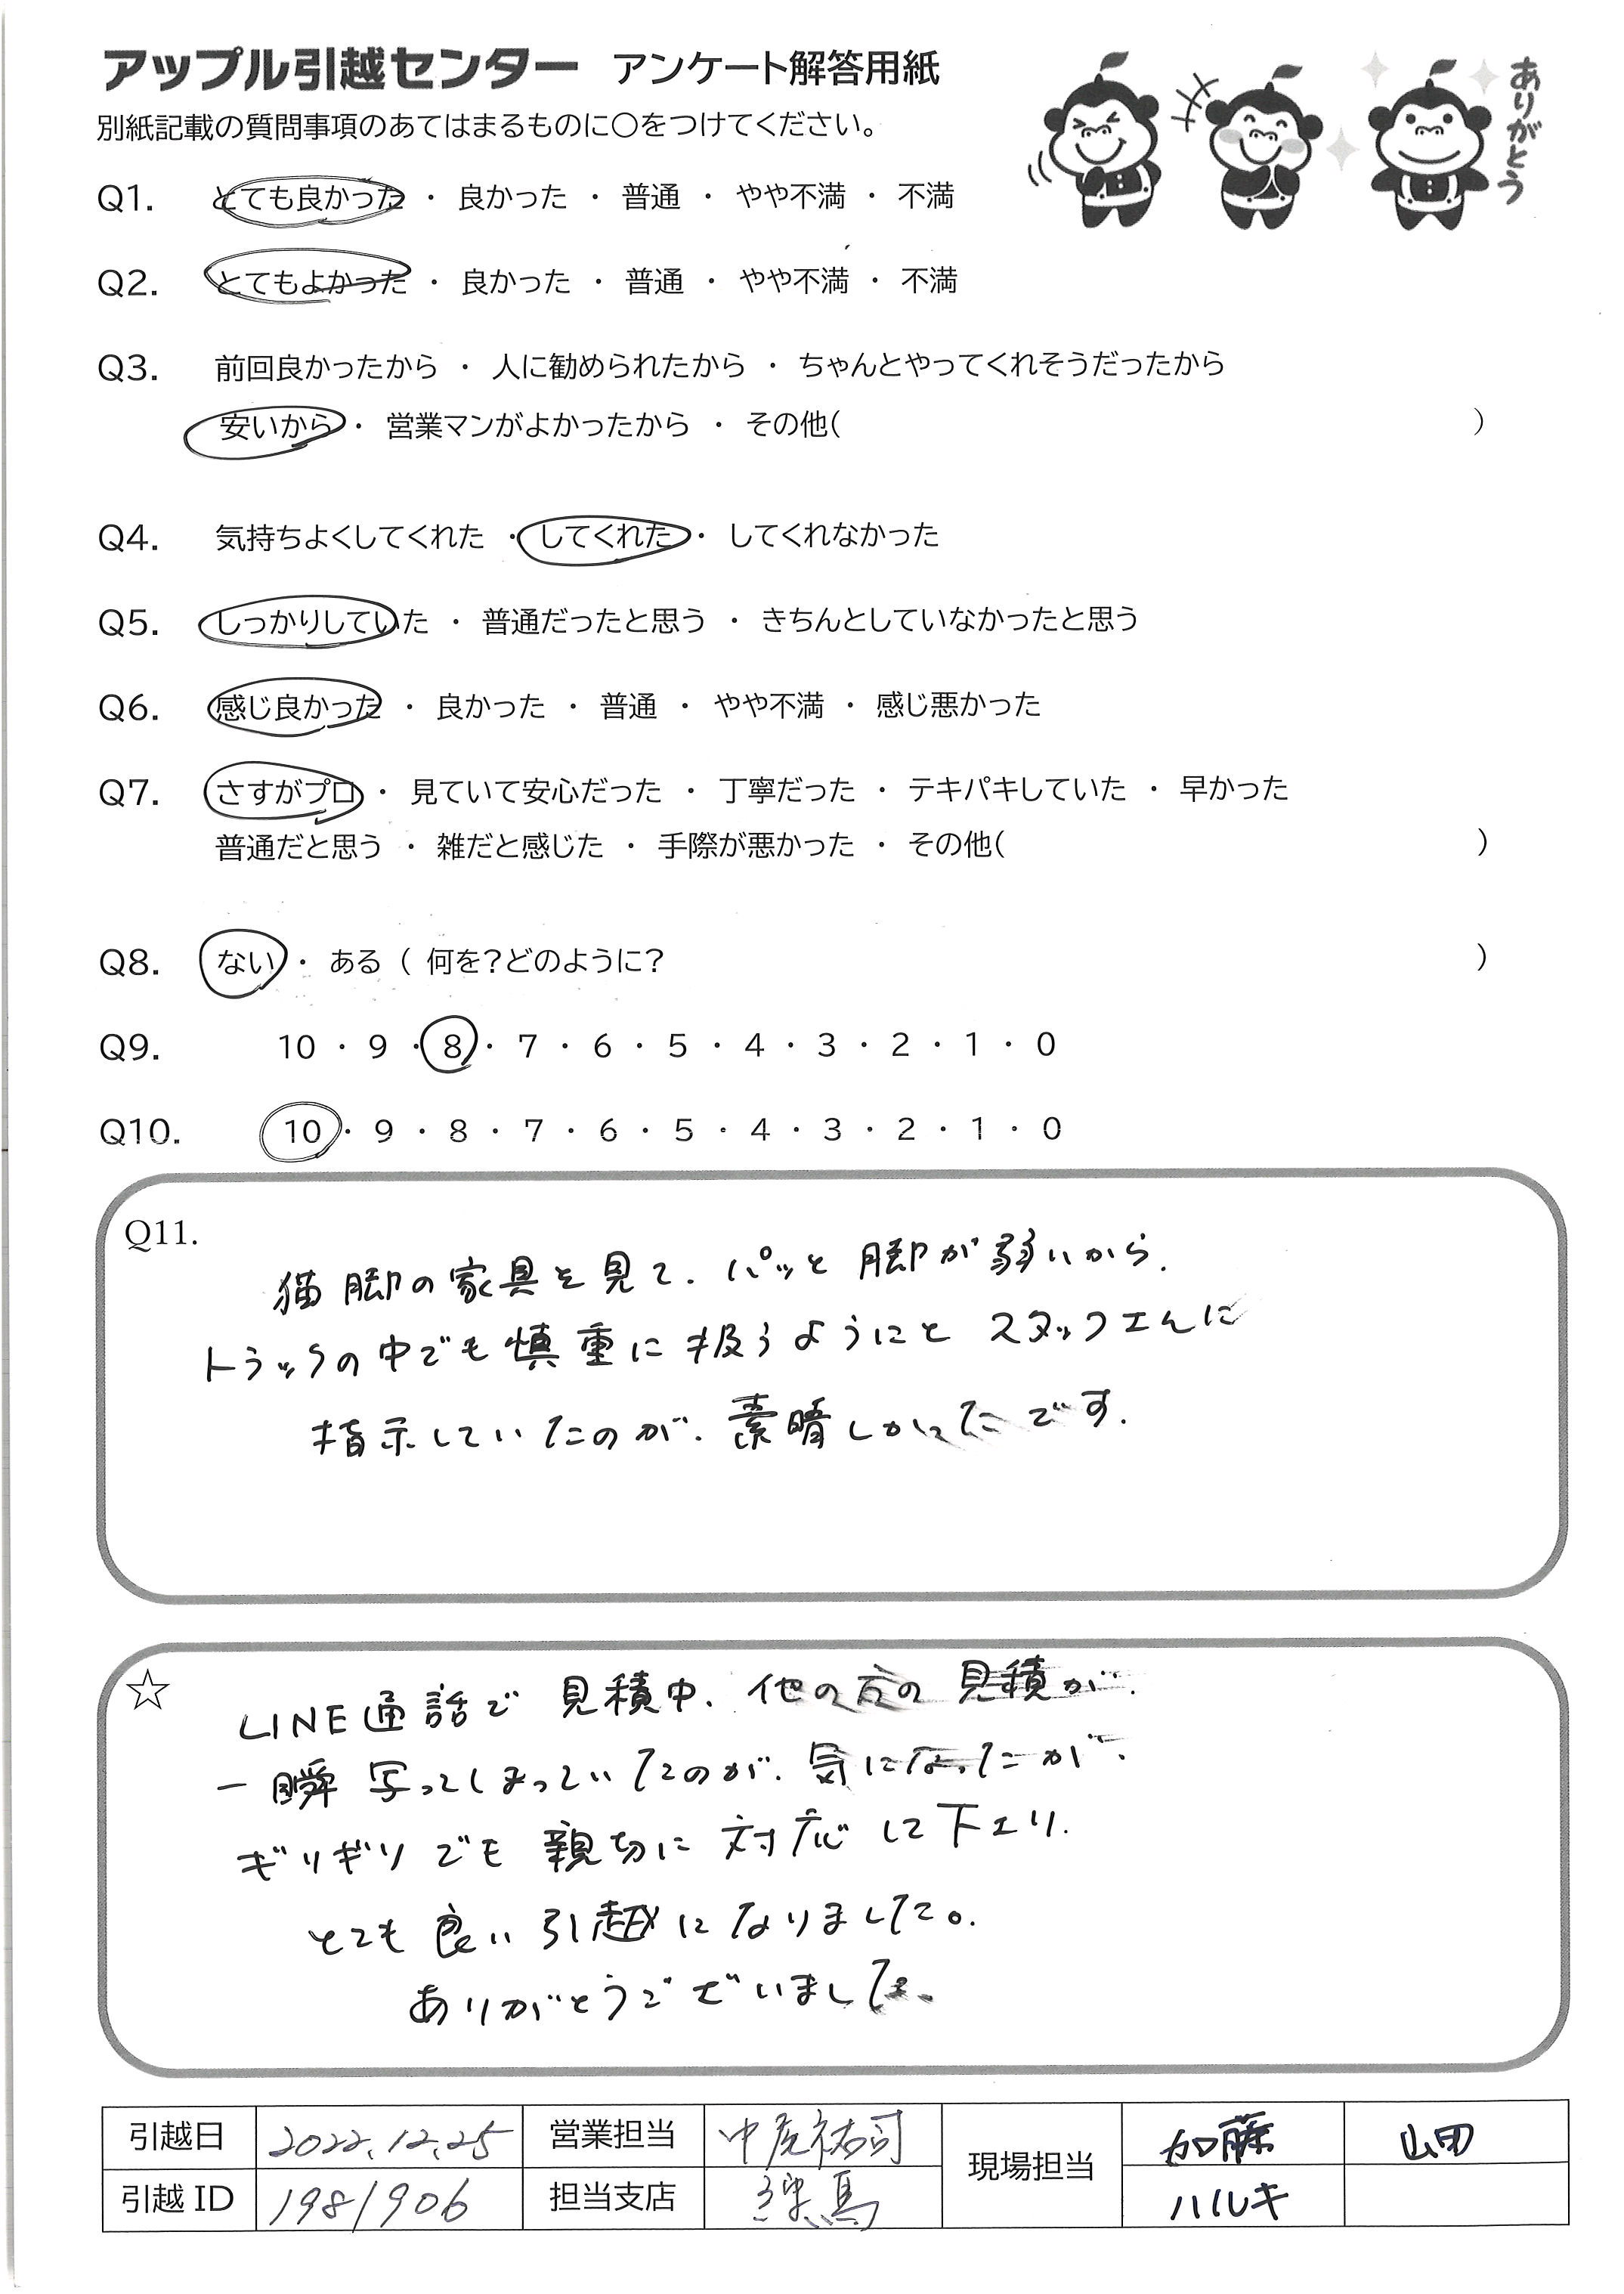 アップル引越センター アンケート解答用紙
別紙記載の質問事項のあてはまるものに〇をつけてください。
ありがとう
Q1. とても良かった ・ 良かった ・ 普通 ・ やや不満 ・ 不満
Q2. とてもよかった ・ 良かった ・ 普通 ・ やや不満 ・ 不満
Q3. 前回良かったから ・ 人に勧められたから ・ ちゃんとやってくれそうだったから
安いから ・ 営業マンがよかったから ・ その他( )
Q4. 気持ちよくしてくれた ・ してくれた ・ してくれなかった
Q5. しっかりしていた ・ 普通だったと思う ・ きちんとしていなかったと思う
Q6. 感じ良かった ・ 良かった ・ 普通 ・ やや不満 ・ 感じ悪かった
Q7. さすがプロ ・ 見ていて安心だった ・ 丁寧だった ・ テキパキしていた ・ 早かった
普通だと思う ・ 雑だと感じた ・ 手際が悪かった ・ その他( )
Q8. ない ・ ある ( 何を?どのように? )
Q9. 10 ・ 9 ・ 8 ・ 7 ・ 6 ・ 5 ・ 4 ・ 3 ・ 2 ・ 1 ・ 0
Q10. 10 ・ 9 ・ 8 ・ 7 ・ 6 ・ 5 ・ 4 ・ 3 ・ 2 ・ 1 ・ 0
Q11.
猫脚の家具を見て、パッと脚が弱いから、
トラックの中でも慎重に扱うようにと スタッフさんに
指示していたのが、素晴しかったです。
☆
LINE通話で 見積中、他の方の 見積が、
一瞬 写ってしまっていたのが、気になったが、
ギリギリでも 親切に 対応して下さり、
とても 良い 引越になりました。
ありがとうございました。
引越日 2022.12.25 営業担当 祐司 現場担当 加藤 山田
引越ID 1981906 担当支店 練馬 ハルキ